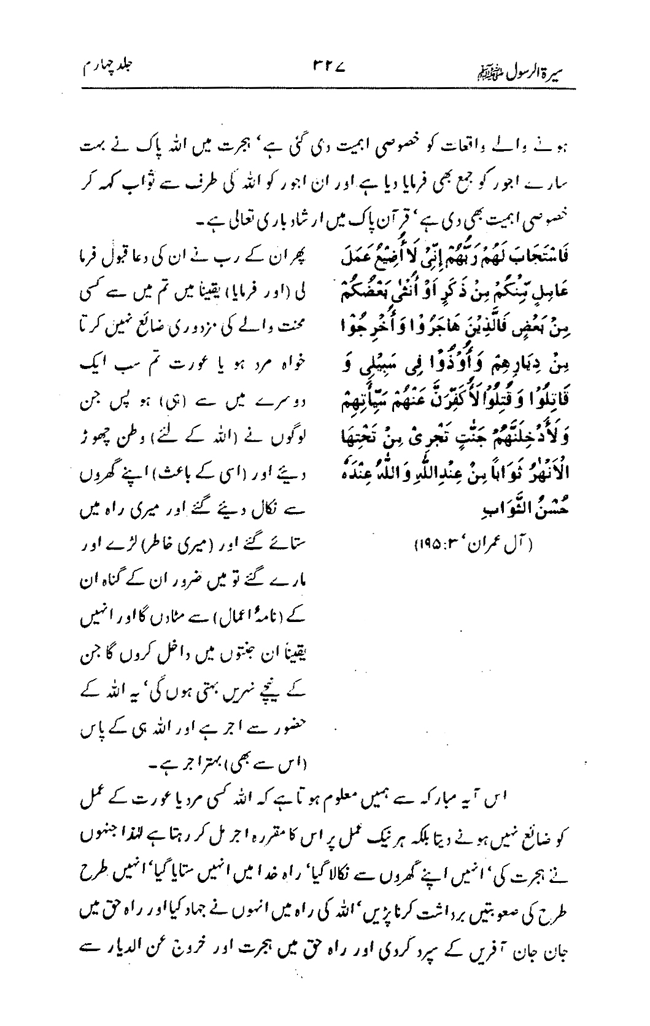 سیرۃ الرسول ﷺ
۳۲۷
جلد چہارم
ہونے والے واقعات کو خصوصی اہمیت دی گئی ہے‘ ہجرت میں اللہ پاک نے بہت
سارے اجور کو جمع بھی فرمایا دیا ہے اور ان اجور کو اللہ کی طرف سے ثواب کہہ کر
خصوصی اہمیت بھی دی ہے‘ قرآن پاک میں ارشاد باری تعالی ہے۔
فَاسْتَجَابَ لَهُمْ رَبُّهُمْ إِنِّیْ لَا أُضِیْعُ عَمَلَ
عَامِلٍ مِّنْکُمْ مِنْ ذَکَرٍ اَوْ أُنْثٰی بَعْضُکُمْ
مِنْ بَعْضٍ فَالَّذِیْنَ هَاجَرُوْا وَ أُخْرِجُوْا
مِنْ دِیَارِهِمْ وَ أُوْذُوْا فِی سَبِیْلِی وَ
قَاتِلُوْا وَ قُتِلُوْا لَأُکَفِّرَنَّ عَنْهُمْ سَیِّأٰتِهِمْ
وَ لَأُدْخِلَنَّهُمْ جَنّٰتٍ تَجْرِیْ مِنْ تَحْتِهَا
الْاَنْهٰرُ ثَوَابًا مِنْ عِنْدِاللّٰهِ وَاللّٰهُ عِنْدَهٗ
حُسْنُ الثَّوَابِ
(آل عمران‘ ۳:۱۹۵)
پھر ان کے رب نے ان کی دعا قبول فرما
لی (اور فرمایا) یقیناً میں تم میں سے کسی
محنت والے کی مزدوری ضائع نہیں کرتا
خواہ مرد ہو یا عورت تم سب ایک
دوسرے میں سے (ہی) ہو پس جن
لوگوں نے (اللہ کے لئے) وطن چھوڑ
دیئے اور (اسی کے باعث) اپنے گھروں
سے نکال دیئے گئے اور میری راہ میں
ستائے گئے اور (میری خاطر) لڑے اور
مارے گئے تو میں ضرور ان کے گناہ ان
کے (نامۂ اعمال) سے مٹادں گا اور انہیں
یقیناً ان جنتوں میں داخل کروں گا جن
کے نیچے نہریں بہتی ہوں گی‘ یہ اللہ کے
حضور سے اجر ہے اور اللہ ہی کے پاس
(اس سے بھی) بہتر اجر ہے۔
اس آیہ مبارکہ سے ہمیں معلوم ہوتا ہے کہ اللہ کسی مرد یا عورت کے عمل
کو ضائع نہیں ہونے دیتا بلکہ ہر نیک عمل پر اس کا مقررہ اجر مل کر رہتا ہے لہٰذا جنہوں
نے ہجرت کی‘ انہیں اپنے گھروں سے نکالا گیا‘ راہ خدا میں انہیں ستایا گیا‘ انہیں طرح
طرح کی صعوبتیں برداشت کرنا پڑیں‘ اللہ کی راہ میں انہوں نے جہاد کیا اور راہ حق میں
جان جان آفریں کے سپرد کردی اور راہ حق میں ہجرت اور خروج عن الدیار سے